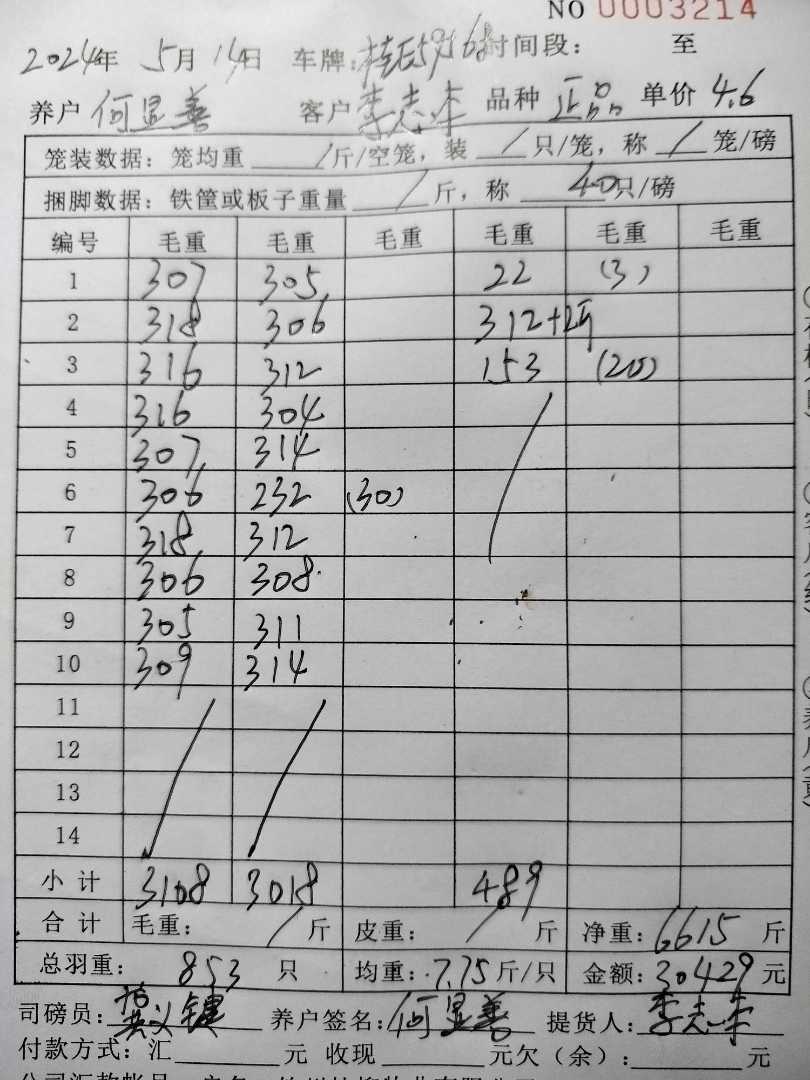 NO 0003214
2024年 5月14日 车牌: 时间段: 至
养户 何显善 客户 李志华 品种 正品 单价 4.6
笼装数据: 笼均重 / 斤/空笼, 装 / 只/笼, 称 / 笼/磅
捆脚数据: 铁筐或板子重量 / 斤, 称 40 只/磅
编号 毛重 毛重 毛重 毛重 毛重 毛重
1 307 305 22 (3)
2 318 306 312+2斤
3 316 312 153 (20)
4 316 304
5 307 314
6 306 232 (30)
7 318 312
8 306 308
9 305 311
10 309 314
11
12
13
14
小计 3108 3018 489
合计 毛重: / 斤 皮重: / 斤 净重: 6615 斤
总羽重: 853 只 均重: 7.75 斤/只 金额: 30429 元
司磅员: 养户签名: 何显善 提货人: 李志华
付款方式: 汇 元 收现 元欠(余): 元